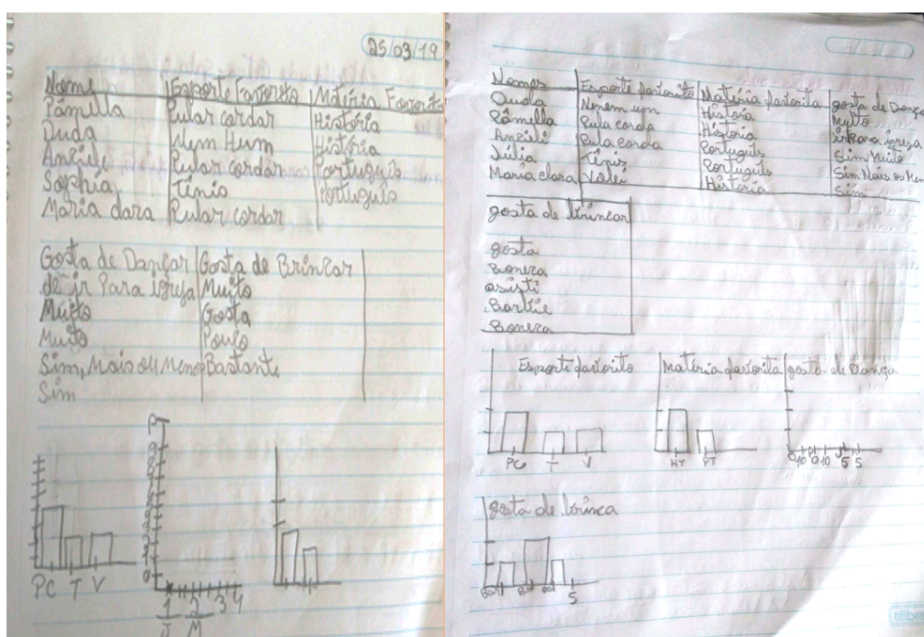 25/03/19
Nome Esporte Favorito Matéria Favorita
Pâmella Pular cordar História
Duda Nem Hum História
Anziele Pular cordar Português
Sophia Tínio Português
Maria clara Pular cordar
Gosta de Dançar Gosta de Brincar
de ir Para igreja Muito
Muito Gosta
Muito Pouco
Sim, Mais ou Menos Bastante
Sim
PC T V
1 2 3 4
J M
Nomes Esporte favorito Matéria favorita gosta de Dança
Duda Nenem um História Muito
Pâmella Pula corda História
Anzieli Pula corda Português Sim Muito
Júlia Tênis Português Sim Mais ou
Maria clara Volei História Sim
gosta de brincar
gosta
Boneca
asisti
Barbie
Boneca
Esporte favorito Matéria favorita gosta de Dança
PC T V HT PT
gosta de brinca
S